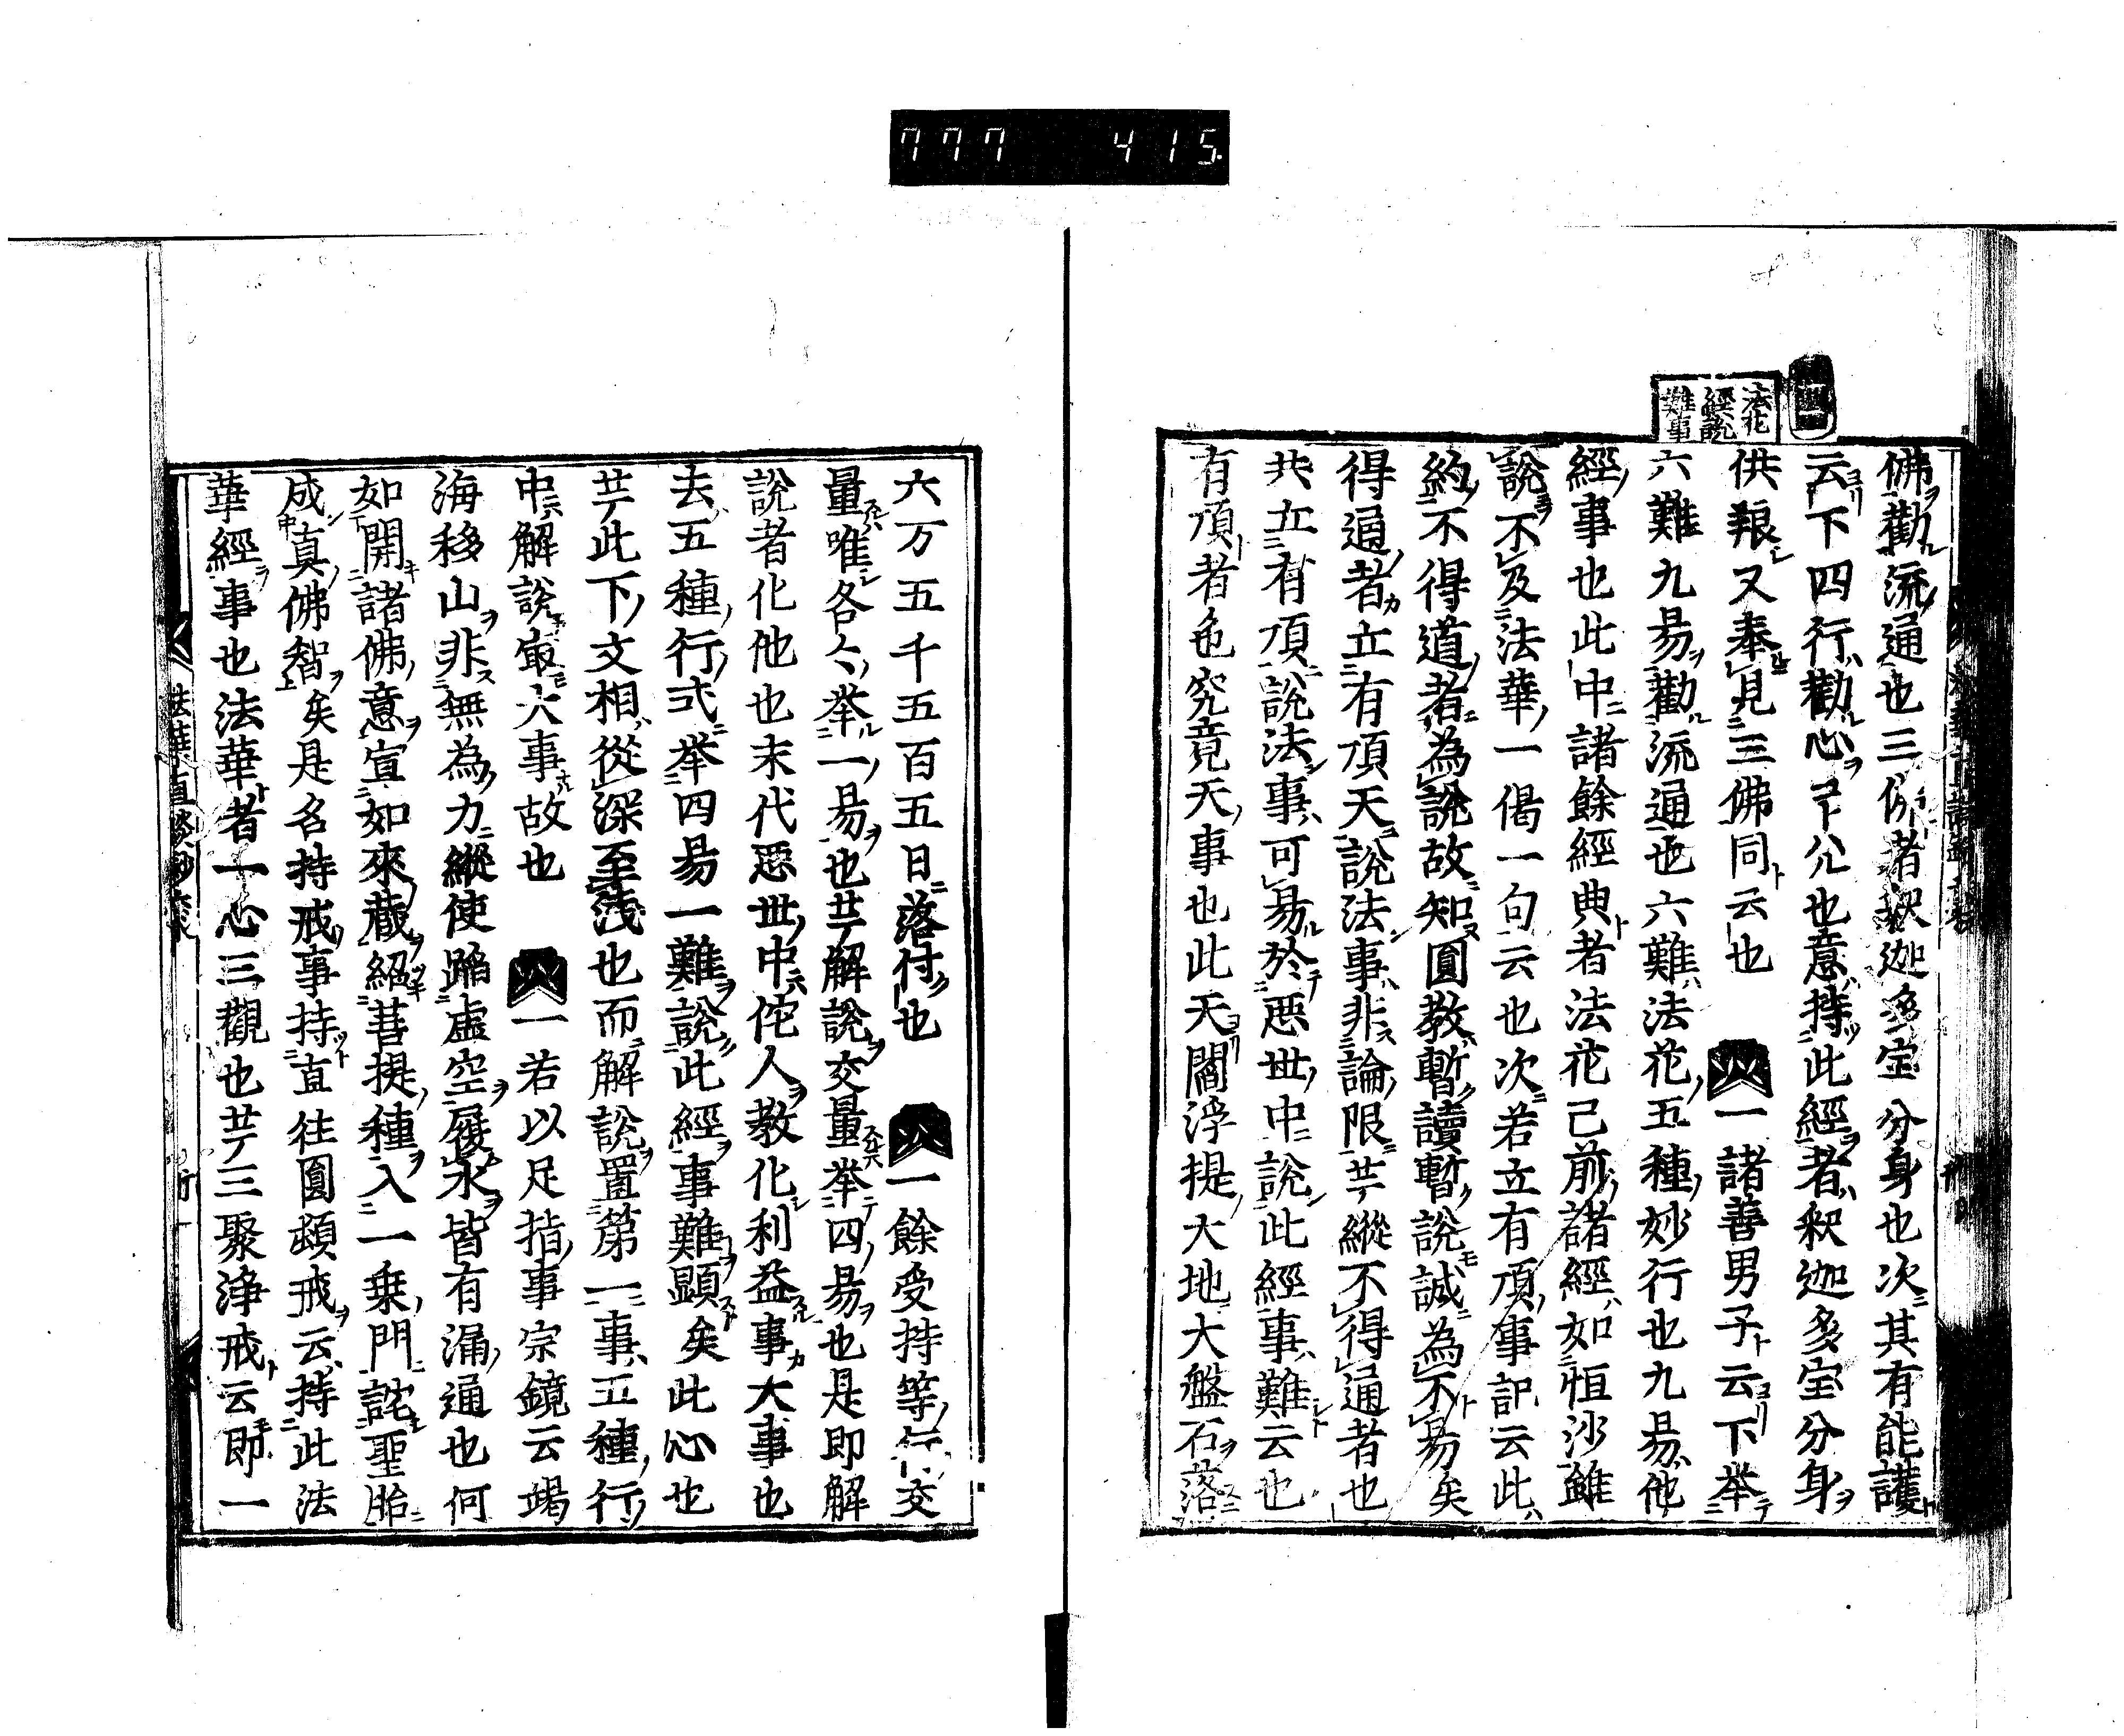 777 415
法花
經說
難事
佛勸流通也三佛者釈迦多宝分身也次其有能護
云下四行勸心
也意持此經者釈迦多宝分身
供粮又奉見三佛同云也 一諸善男子云下挙
六難九易勸流通也六難法花五種妙行也九易他
經事也此中諸餘經典者法花己前諸經如恒沙雖
說不及法華一偈一句云也次若立有頂事記云此
約不得道者為說故知圓教暫讀暫說誠為不易矣
得通者立有頂天說法事非論限䒑縱不得通者也
共立有頂說法事可易於悪世中說此經事難云也
有頂者色究竟天事也此天閻浮提大地大盤石落
六万五千五百五日落付也 一餘受持等行交
量唯各々挙一易也䒑解說交量挙四易也是即解
說者化他也末代悪世中佗人教化利益事大事也
去五種行弍挙四易一難說此經事難顕矣此心也
䒑此下文相從深至浅也而解說置第一事五種行
中解說㝡大事故也 一若以足指事宗鏡云竭
海移山非無為力縱使蹈虚空履水皆有漏通也何
如開諸佛意宣如來蔵紹菩提種入一乗門詫聖胎
成真佛智矣是名持戒事持直往圓頓戒云持此法
華經事也法華者一心三觀也䒑三聚浄戒云即一
法華直談鈔六末